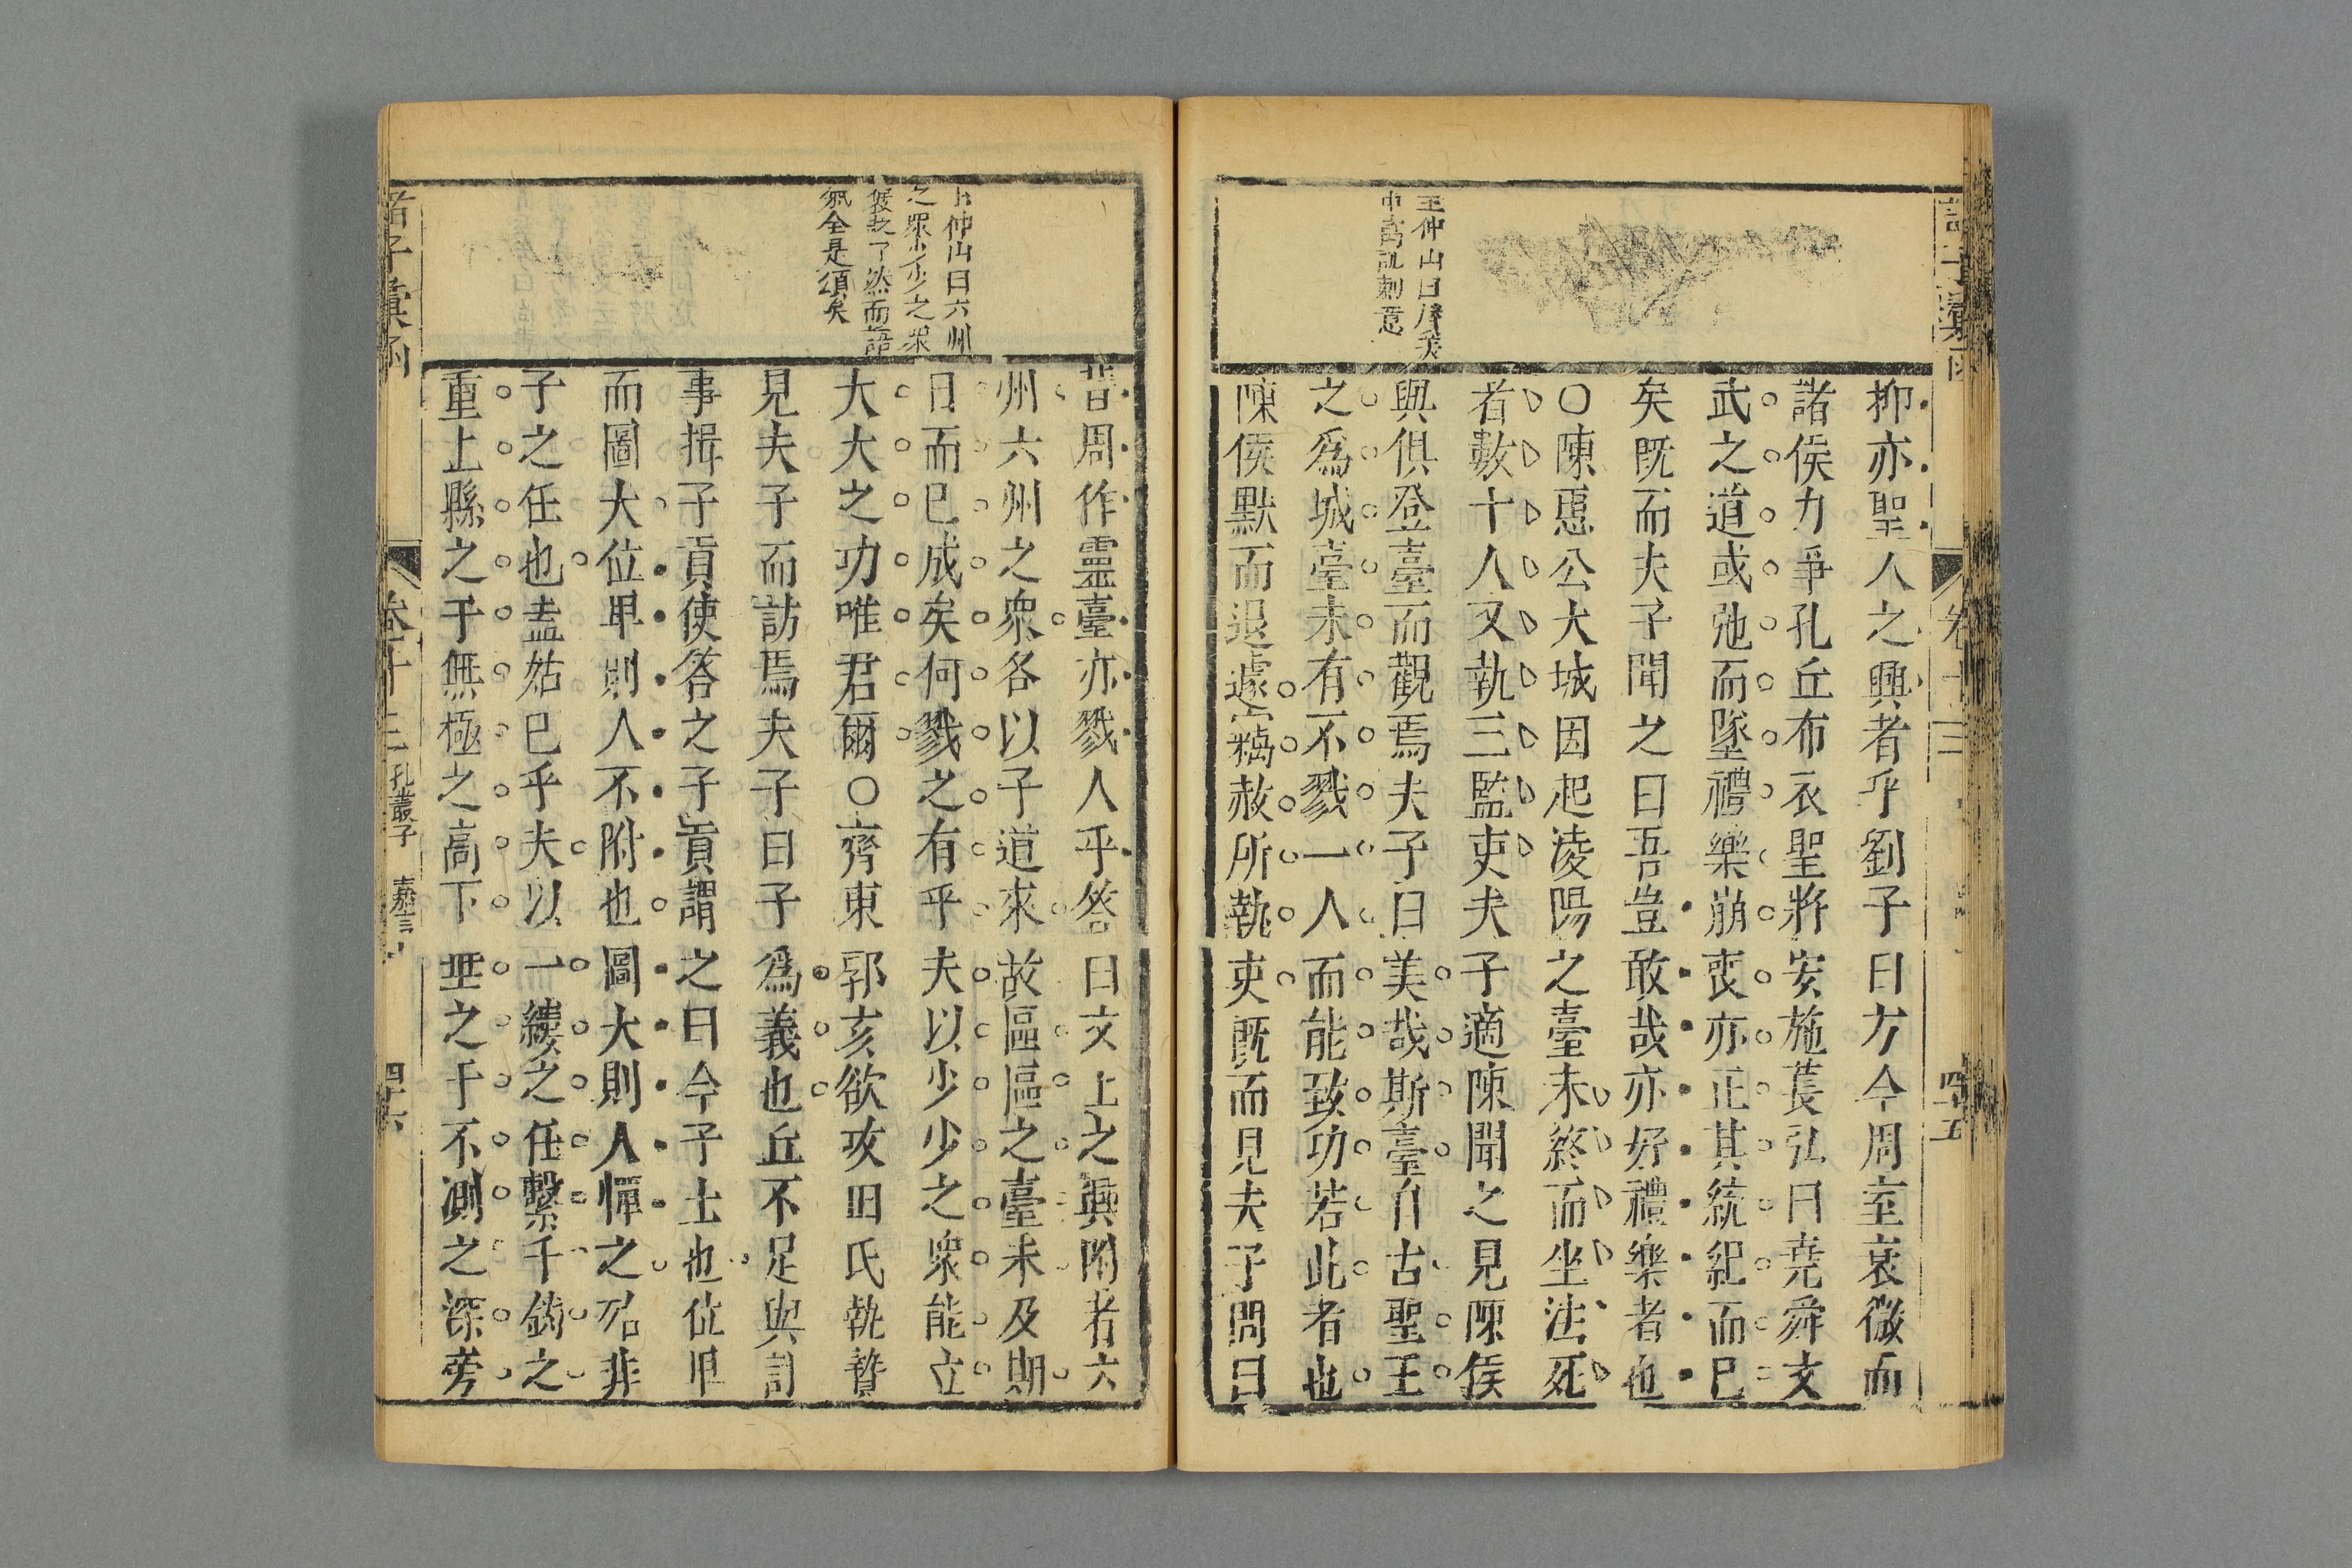 王仲山曰辭美
中寓訊刺意
抑亦聖人之興者乎劉子曰方今周室衰微而
諸侯力爭孔丘布衣聖將安施萇弘曰堯舜文
武之道或弛而墜禮樂崩喪亦正其統紀而已
矣既而夫子聞之曰吾豈敢哉亦好禮樂者也
○陳惠公大城因起淩陽之臺未終而坐法死
者數十人又執三監吏夫子適陳聞之見陳侯
與俱登臺而觀焉夫子曰美哉斯臺自古聖王
之為城臺未有不戮一人而能致功若此者也
陳侯默而退遽竊赦所執吏既而見夫子問曰
王仲山曰六州
之眾少少之眾
發之了然而語
氣全是頌矣
昔周作靈臺亦戮人乎答曰文王之興附者六
州六州之眾各以子道來故區區之臺未及期
日而已成矣何戮之有乎夫以少少之眾能立
大大之功唯君爾○齊東郭亥欲攻田氏執贄
見夫子而訪焉夫子曰子為義也丘不足與計
事揖子貢使答之子貢謂之曰今子士也位卑
而圖大位卑則人不附也圖大則人憚之殆非
子之任也盍姑已乎夫以一縷之任繫千鈞之
重上縣之于無極之高下垂之于不測之深旁
諸子彙函
卷十三
孔叢子
嘉言
四十六